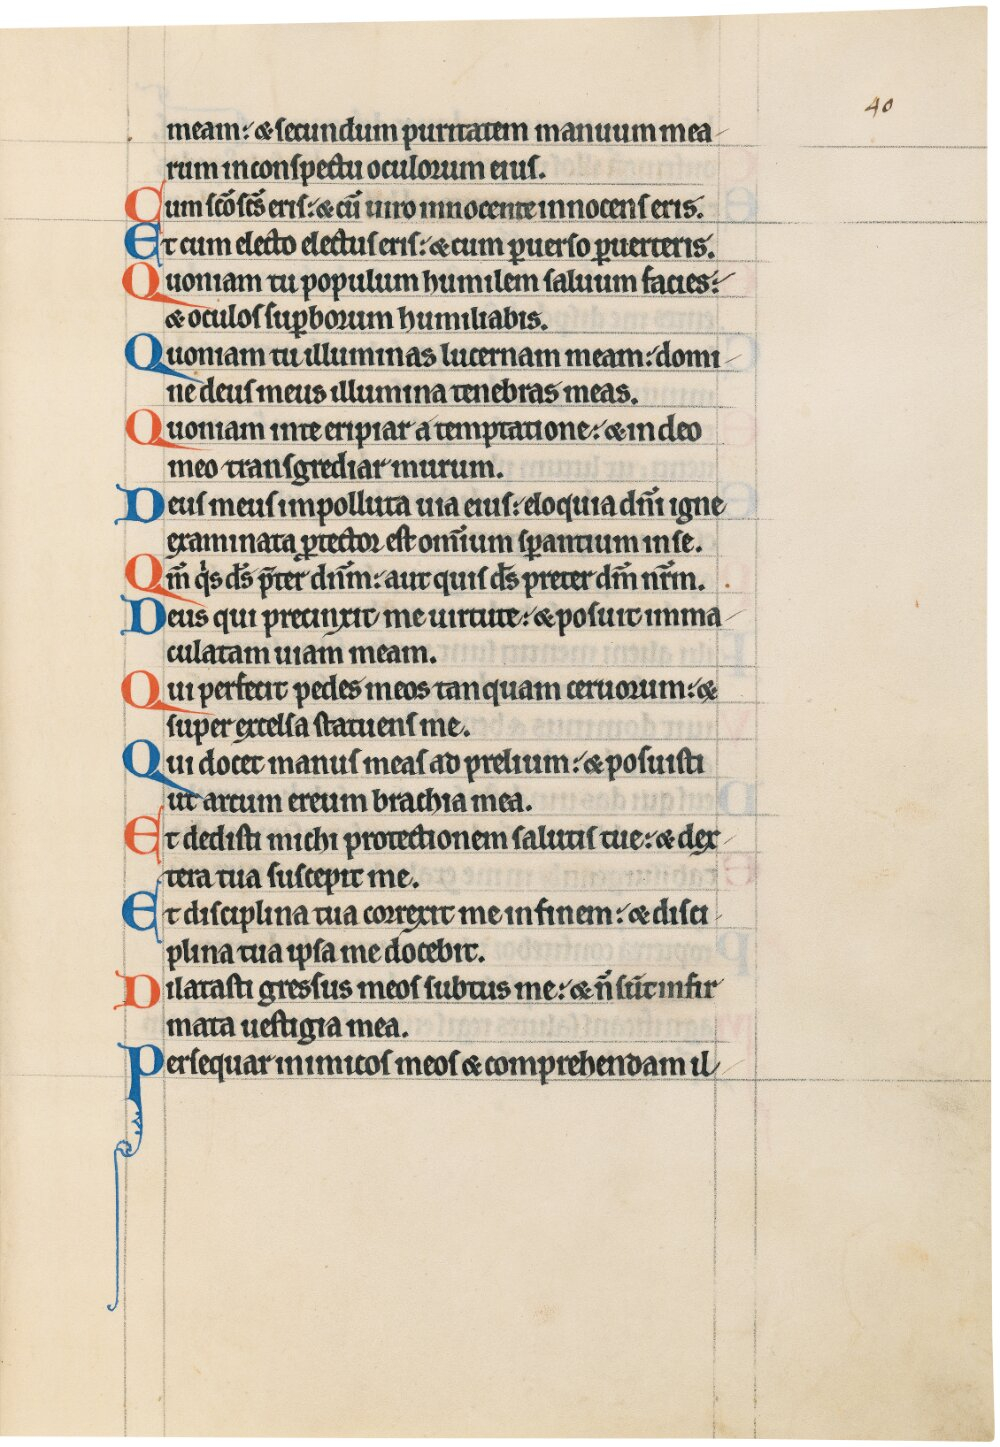 40
meam: & secundum puritatem manuum mea
rum in conspectu oculorum eius.
Cum sc̃o sc̃s eris: & cũ uiro innocente innocens eris.
Et cum electo electus eris: & cum ꝑuerso ꝑuerteris.
Quoniam tu populum humilem saluum facies:
& oculos suꝑborum humiliabis.
Quoniam tu illuminas lucernam meam: domi
ne deus meus illumina tenebras meas.
Quoniam in te eripiar a temptatione: & in deo
meo transgrediar murum.
Deus meus impolluta uia eius: eloquia dñi igne
examinata ꝓtector est om̃ium sꝑantium in se.
Qm̃ qͥs ds̃ p̃ter dñm: aut quis ds̃ preter dm̃ nr̃m.
Deus qui precinxit me uirtute: & posuit imma
culatam uiam meam.
Qui perfecit pedes meos tanquam ceruorum: &
super excelsa statuens me.
Qui docet manus meas ad prelium: & posuisti
ut arcum ereum brachia mea.
Et dedisti michi protectionem salutis tue: & dex
tera tua suscepit me.
Et disciplina tua correxit me in finem: & disci
plina tua ipsa me docebit.
Dilatasti gressus meos subtus me: & ñ sũt infir
mata uestigia mea.
Persequar inimicos meos & comprehendam il